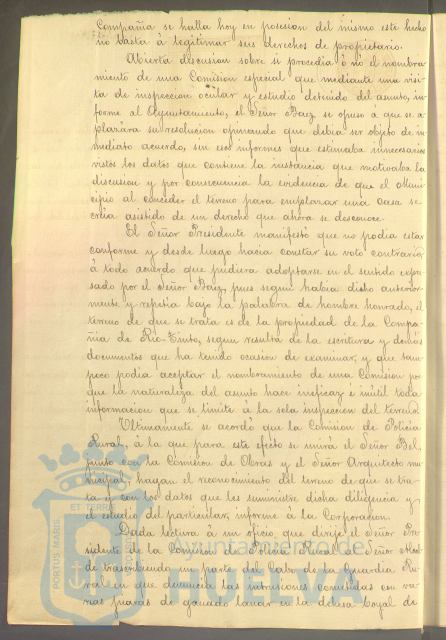 Compañia se halla hoy en posesion del mismo este hecho
no basta á legitimar sus derechos de propietario.
Abierta discusion sobre si procedia ó nó el nombra-
miento de una Comision especial que mediante una visi-
ta de inspeccion ocular y estudio detenido del asunto, in-
forme al Ayuntamiento, el Señor Baez se opuso á que se a-
plazára su resolucion opinando que debia ser objeto de in-
mediato acuerdo, sin esos informes que estimaba innecesarios
vistos los datos que contiene la instancia que motivaba la
discusion y por consecuencia la evidencia de que el Muni-
cipio al conceder el terreno para emplazar una casa se
creia asistido de un derecho que ahora se desconoce.
El Señor Presidente manifestó que no podia estar
conforme y desde luego hacia constar su voto contrario
á todo acuerdo que pudiera adoptarse en el sentido expre-
sado por el Señor Baez, pues segun habia dicho anterior-
mente y repetia bajo la palabra de hombre honrado, el
terreno de que se trata es de la propiedad de la Compa-
ñia de Rio-Tinto, segun resulta de la escritura y demás
documentos que ha tenido ocasion de examinar, y que tam-
poco podia aceptar el nombramiento de una Comision por
que la naturaleza del asunto hace ineficaz é inútil toda
informacion que se limite á la sola inspeccion del terreno.
Ultimamente se acordó que la Comision de Policia
Rural, á la que para este efecto se unirá el Señor Bel,
junto con la Comision de Obras y el Señor Arquitecto mu-
nicipal, hagan el reconocimiento del terreno de que se tra-
ta y con los datos que les suministre dicha diligencia y
el estudio del particular, informe á la Corporacion.
Dada lectura á un oficio que dirije el Señor Pre-
sidente de la Comision de Policia Rural al Señor Alcal-
de trascribiendo un parte del Cabo de la Guardia Ru-
ral en que denuncia las intrusiones cometidas con va-
rias piaras de ganado lanar en la dehesa boyal de
PORTUS MARIS ET TERRÆ
Ayuntamiento de
HUELVA